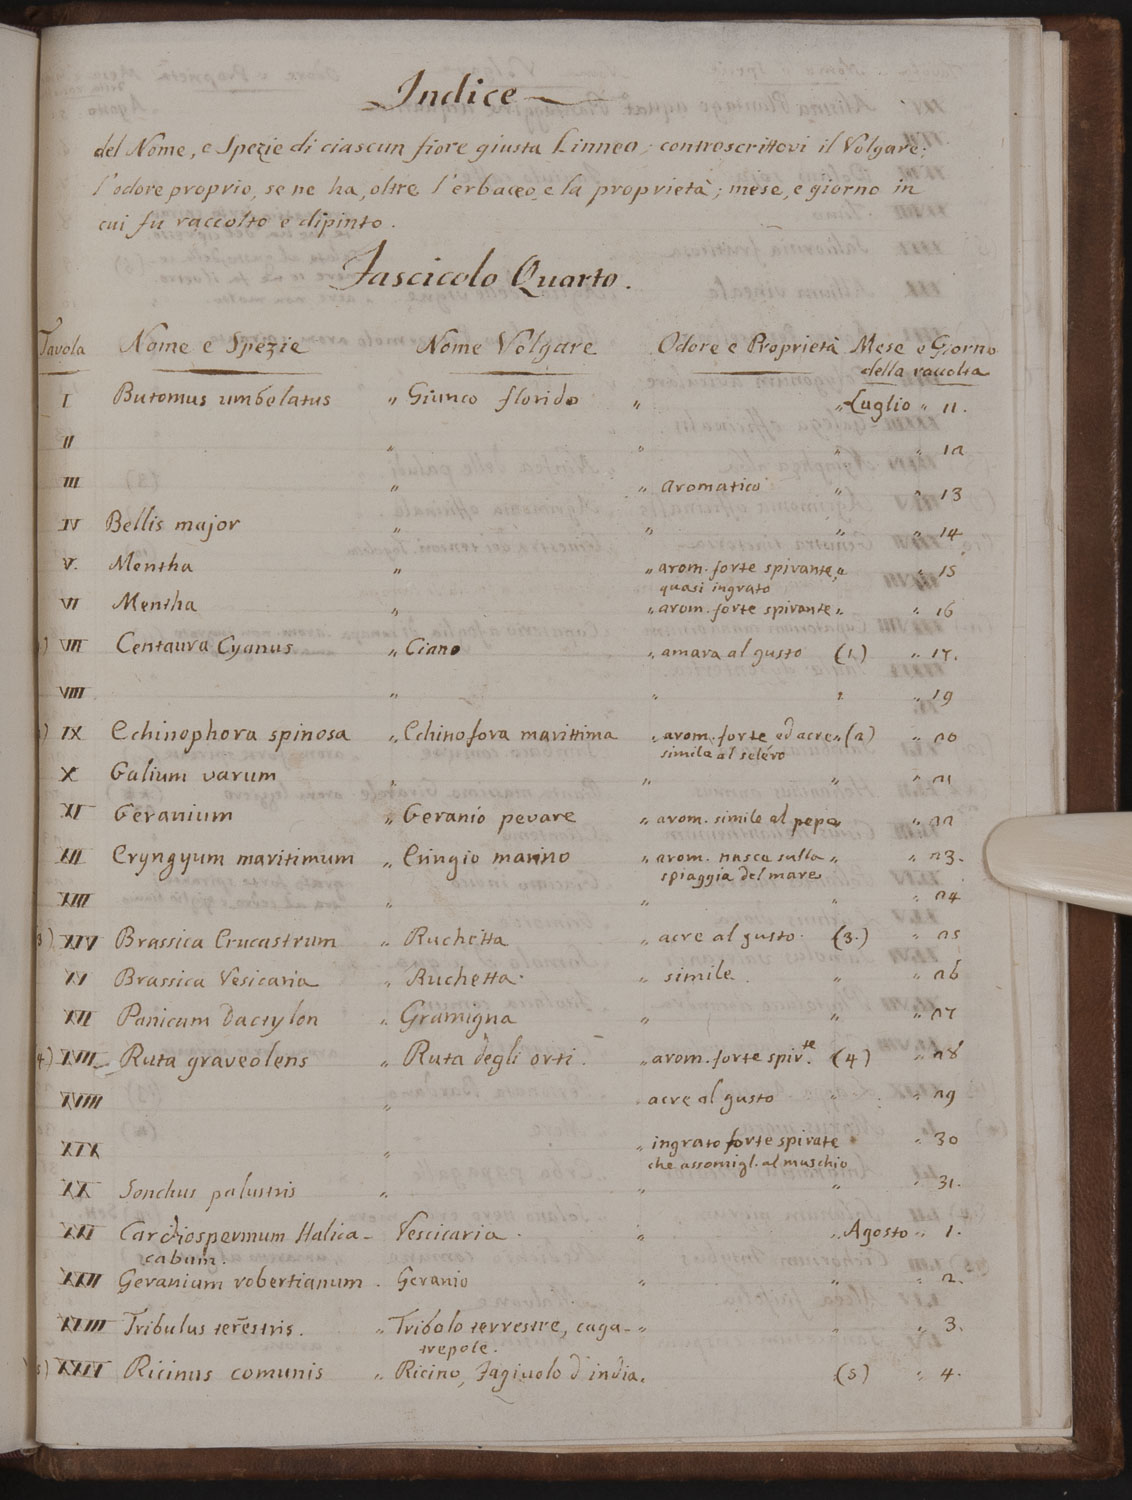 Indice
del Nome, e Spezie di ciascun fiore giusta Linneo; controscrittovi il Volgare;
l'odore proprio, se ne ha, oltre l'erbaceo, e la proprietà; mese, e giorno in
cui fu raccolto e dipinto.
Fascicolo Quarto.
Tavola Nome e Spezie Nome Volgare Odore e Proprietà Mese e Giorno
della raccolta
I Butomus umbelatus " Giunco florido " " Luglio " 11.
II " " " " 12
III " " aromatico " " 13
IV Bellis major " " " " 14
V. Mentha " " arom. forte spirante, " " 15
quasi ingrato
VI Mentha " " arom. forte spirante " " 16
1) VII Centaura Cyanus " Ciano " amara al gusto (1.) " 17.
VIII " " " " 19
2) IX Echinophora spinosa " Echinofora marittima " arom. forte ed acre " (2) " 20
simile al seléro
X Galium varum " " " " 21
XI Geranium " Geranio pevare " arom. simile al pepe " " 22
XII Eryngyum maritimum " Eringio marino " arom. nasce sulla " " 23.
spiaggia del mare
XIII " " " 24
3) XIV Brassica Erucastrum " Ruchetta " acre al gusto. (3.) " 25
XV Brassica Vesicaria " Ruchetta. " simile. " " 26
XVI Panicum Dactylon " Gramigna " " " 27
4.) XVII Ruta graveolens " Ruta degli orti. " arom. forte spir.te (4) " 28
XVIII " " acre al gusto " " 29
XIX " " ingrato forte spirate " 30
che assomigl. al muschio
XX Sonchus palustris " " " " 31.
XXI Cardiospermum Halica- Vescicaria. " " Agosto " 1.
cabum.
XXII Geranium robertianum. Geranio " " " 2.
XXIII Tribulus terrestris. " Tribolo terrestre, caga- " " " 3.
trepole.
5) XXIV Ricinus comunis " Ricino, Fagiuolo d'india. (5) " 4.